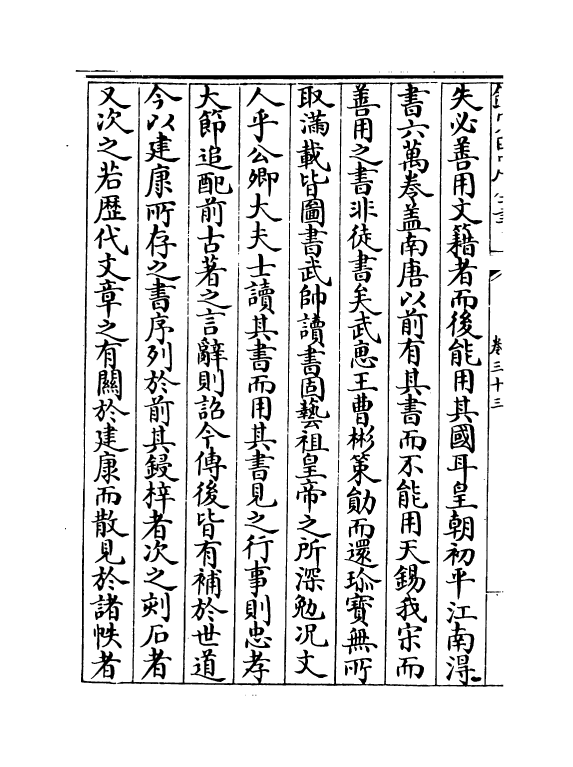 卷三十三
失必善用文籍者而後能用其國耳皇朝初平江南得
書六萬卷盖南唐以前有其書而不能用天錫我宋而
善用之書非徒書矣武恵王曹彬策勛而還珎寳無所
取滿載皆圖書武帥讀書固藝祖皇帝之所深勉况文
人乎公卿大夫士讀其書而用其書見之行事則忠孝
大節追配前古著之言辭則詔今傳後皆有補於世道
今以建康所存之書序列於前其鋟梓者次之刻石者
又次之若歴代文章之有關於建康而散見於諸帙者